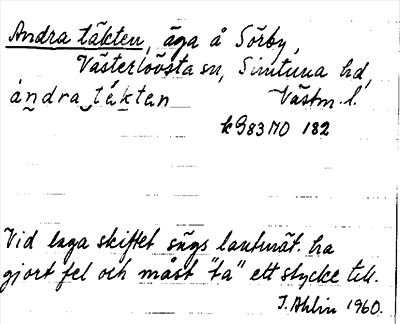 Andra täkten, äga å Sörby,
Västerlövsta sn, Simtuna hd,
ándra_tákten Västm. l.
k983 NO 182
Vid laga skiftet sägs lantmät. ha
gjort fel och måst "ta" ett stycke till.
J. Ahlin 1960.